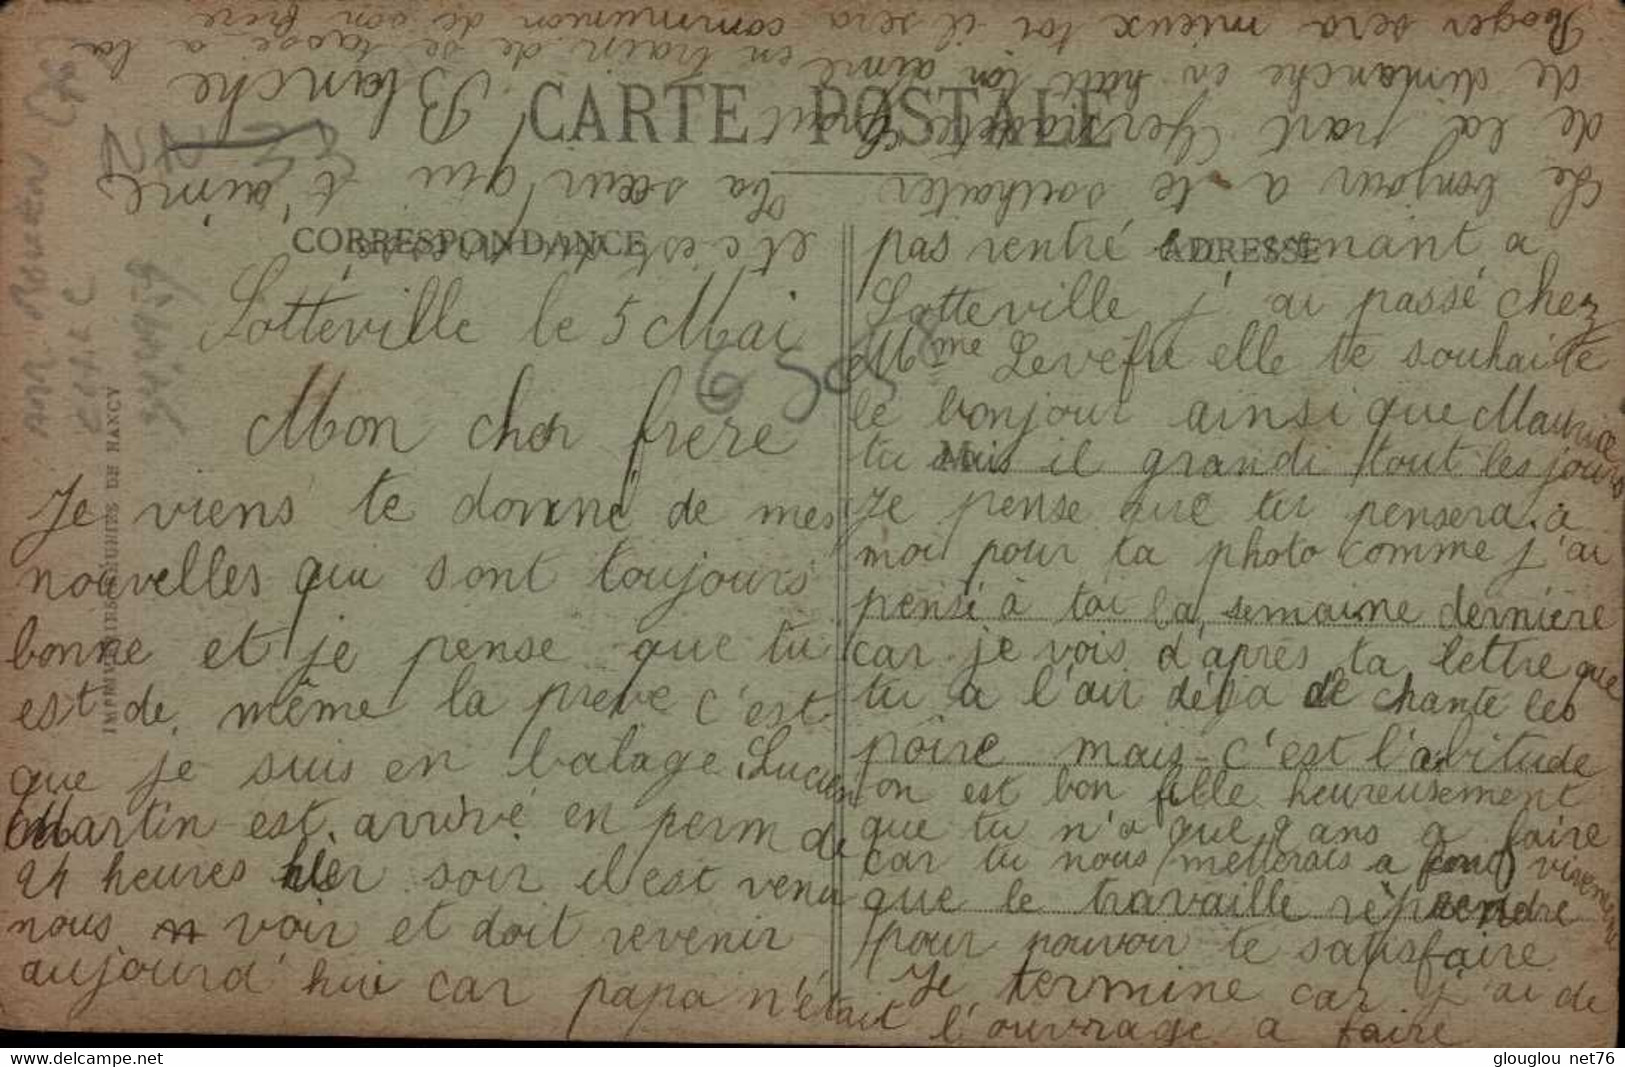 CARTE POSTALE
CORRESPONDANCE
ADRESSE
Sotteville le 5 Mai
Mon cher frère
Je viens te donné de mes
nouvelles qui sont toujours
bonne et je pense que tu
est de même la preve c'est
que je suis en balage Lucien
Martin est arrivé en perm de
24 heures hier soir il est venu
nous voir et doit revenir
aujourd'hui car papa n'était
pas rentré en venant a
Sotteville j'ai passé chez
Mme Levefu elle te souhaite
le bonjour ainsi que Maurice
tu sais il grandi tout les jours
Je pense que tu pensera à
moi pour ta photo comme j'ai
pensé à toi la semaine dernière
car je vois d'après ta lettre que
tu a l'air déja de chanté les
poire mais c'est l'abitude
on est bon fille heureusement
que tu n'a que 2 ans a faire
car tu nous metterais a
que le travaille reprendre
pour pouvoir te satisfaire
Je termine car j'ai de
l'ouvrage a faire
Le bonjour a te souhaiter
de la part Germaine
de dimanche en huit
Roger sera mieux toi il sera
en train de se taosé a la
communion de son frère
et c'est
Ta sœur qui t'aime
Blanche
6508
IMPRIMERIES REUNIES DE NANCY
glouglou net76